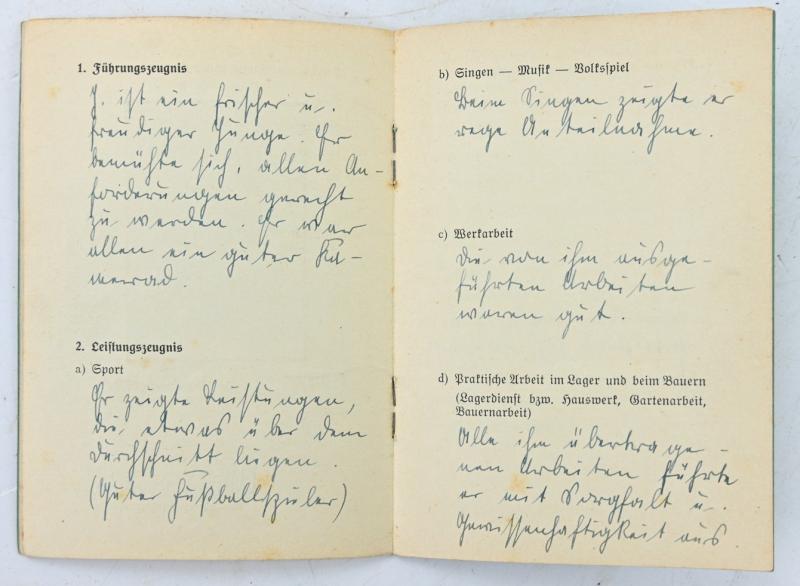 1. Führungszeugnis
J. ist ein frischer u.
freudiger Junge. Er
bemühte sich, allen An-
forderungen gerecht
zu werden. Er war
allen ein guter Ka-
merad.
2. Leistungszeugnis
a) Sport
Er zeigte Leistungen,
die etwas über dem
Durchschnitt liegen.
(Guter Fußballspieler)
b) Singen — Musik — Volksspiel
Beim Singen zeigte er
rege Anteilnahme.
c) Werkarbeit
Die von ihm ausge-
führten Arbeiten
waren gut.
d) Praktische Arbeit im Lager und beim Bauern
(Lagerdienst bzw. Hauswerk, Gartenarbeit,
Bauernarbeit)
Alle ihm übertrage-
nen Arbeiten führte
er mit Sorgfalt u.
Gewissenhaftigkeit aus.